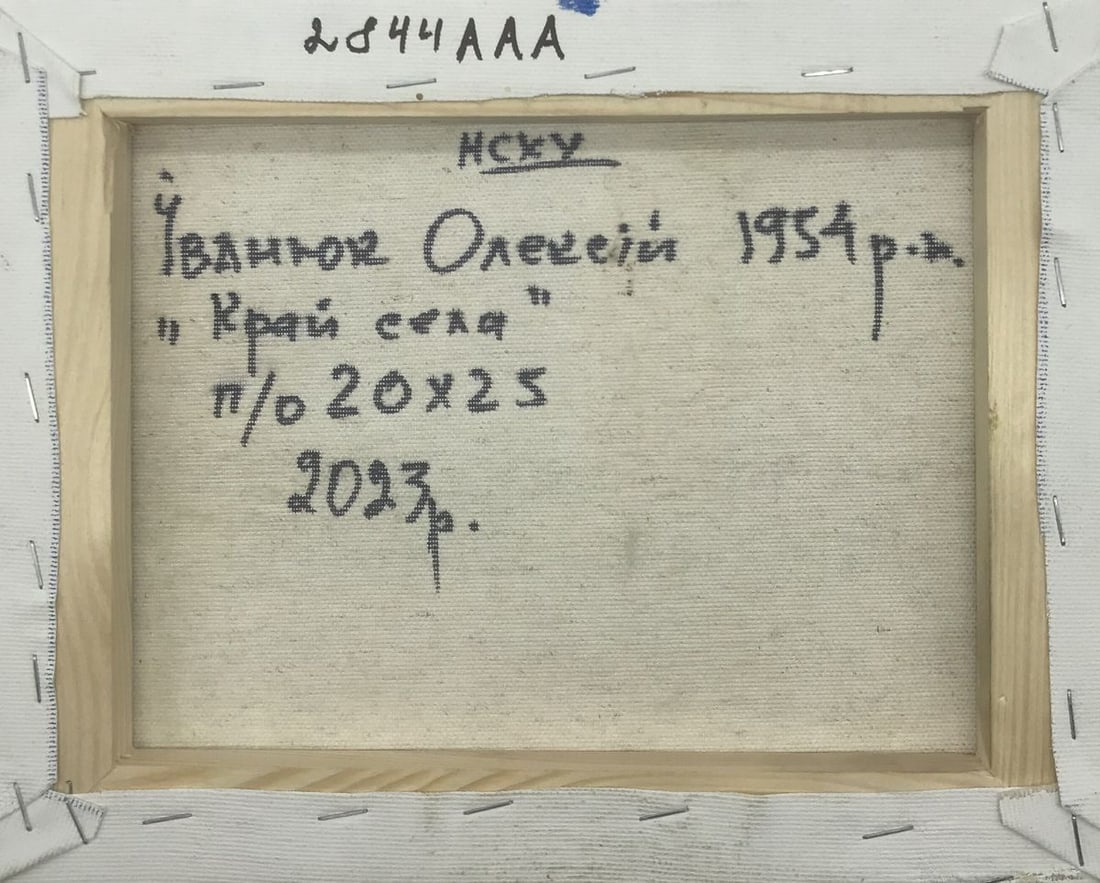 2844AAA
НСХУ
Іванюк Олексій 1954 р.н.
„Край села"
п/о 20х25
2023р.